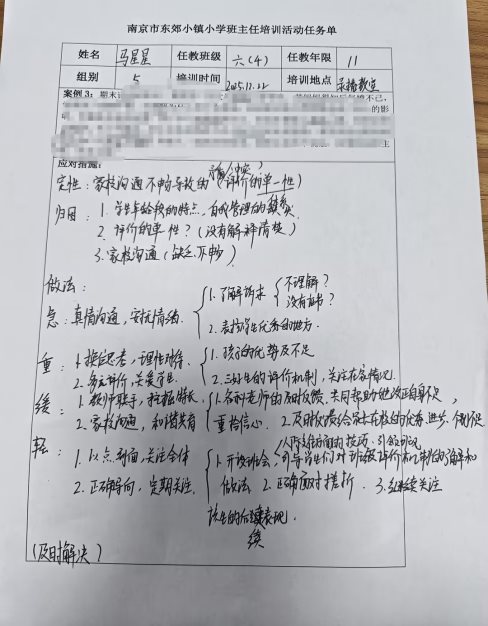 南京市东郊小镇小学班主任培训活动任务单
姓名 马星星 任教班级 六(4) 任教年限 11
组别 5 培训时间 2025.12.22 培训地点 录播教室
案例3：期末
应对措施：
定性：家校沟通不畅导致的 (评价的单一性)
归因：1. 学生年龄段的特点，自我管理的缺失
2. 评价的单一性？(没有解释清楚)
3. 家校沟通(缺乏、不畅)
做法：
急：真情沟通，安抚情绪 1. 了解诉求 不理解？
没有
2. 表扬学生优秀的地方.
重：1. 换位思考，理性对待 1. 孩子的优势及不足
2. 多元评价，关爱学生 2. 三好生的评价机制，关注在各情况
缓：1. 教师联手，挖掘特长 1. 各科老师的及时反馈，共同帮助他改正自身不足，
2. 家校沟通，和谐共育 重拾信心. 2. 及时反馈给家长在校的优秀、进步、
轻：1. 以点到面，关注全体 1. 开展班会，引导学生们对 评价机制的了解和
2. 正确导向，定期关注. 做法 2. 正确面对挫折. 3. 继续关注
该生的后续表现.
续
(及时解决)